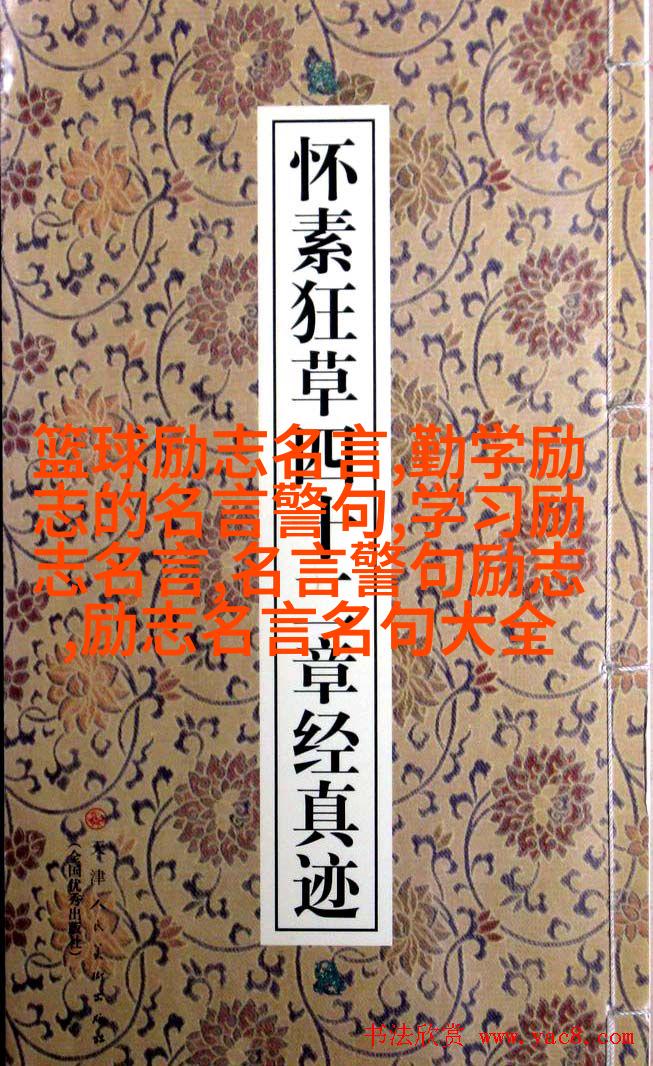 怀素狂草四十二章经真迹
篮球励志名言,勤学励
志的名言警句,学习励
志名言,名言警句励志
,励志名言名句大全
天津人民美术出版社
(全国优秀出版社)
书法欣赏 www.yac8.com